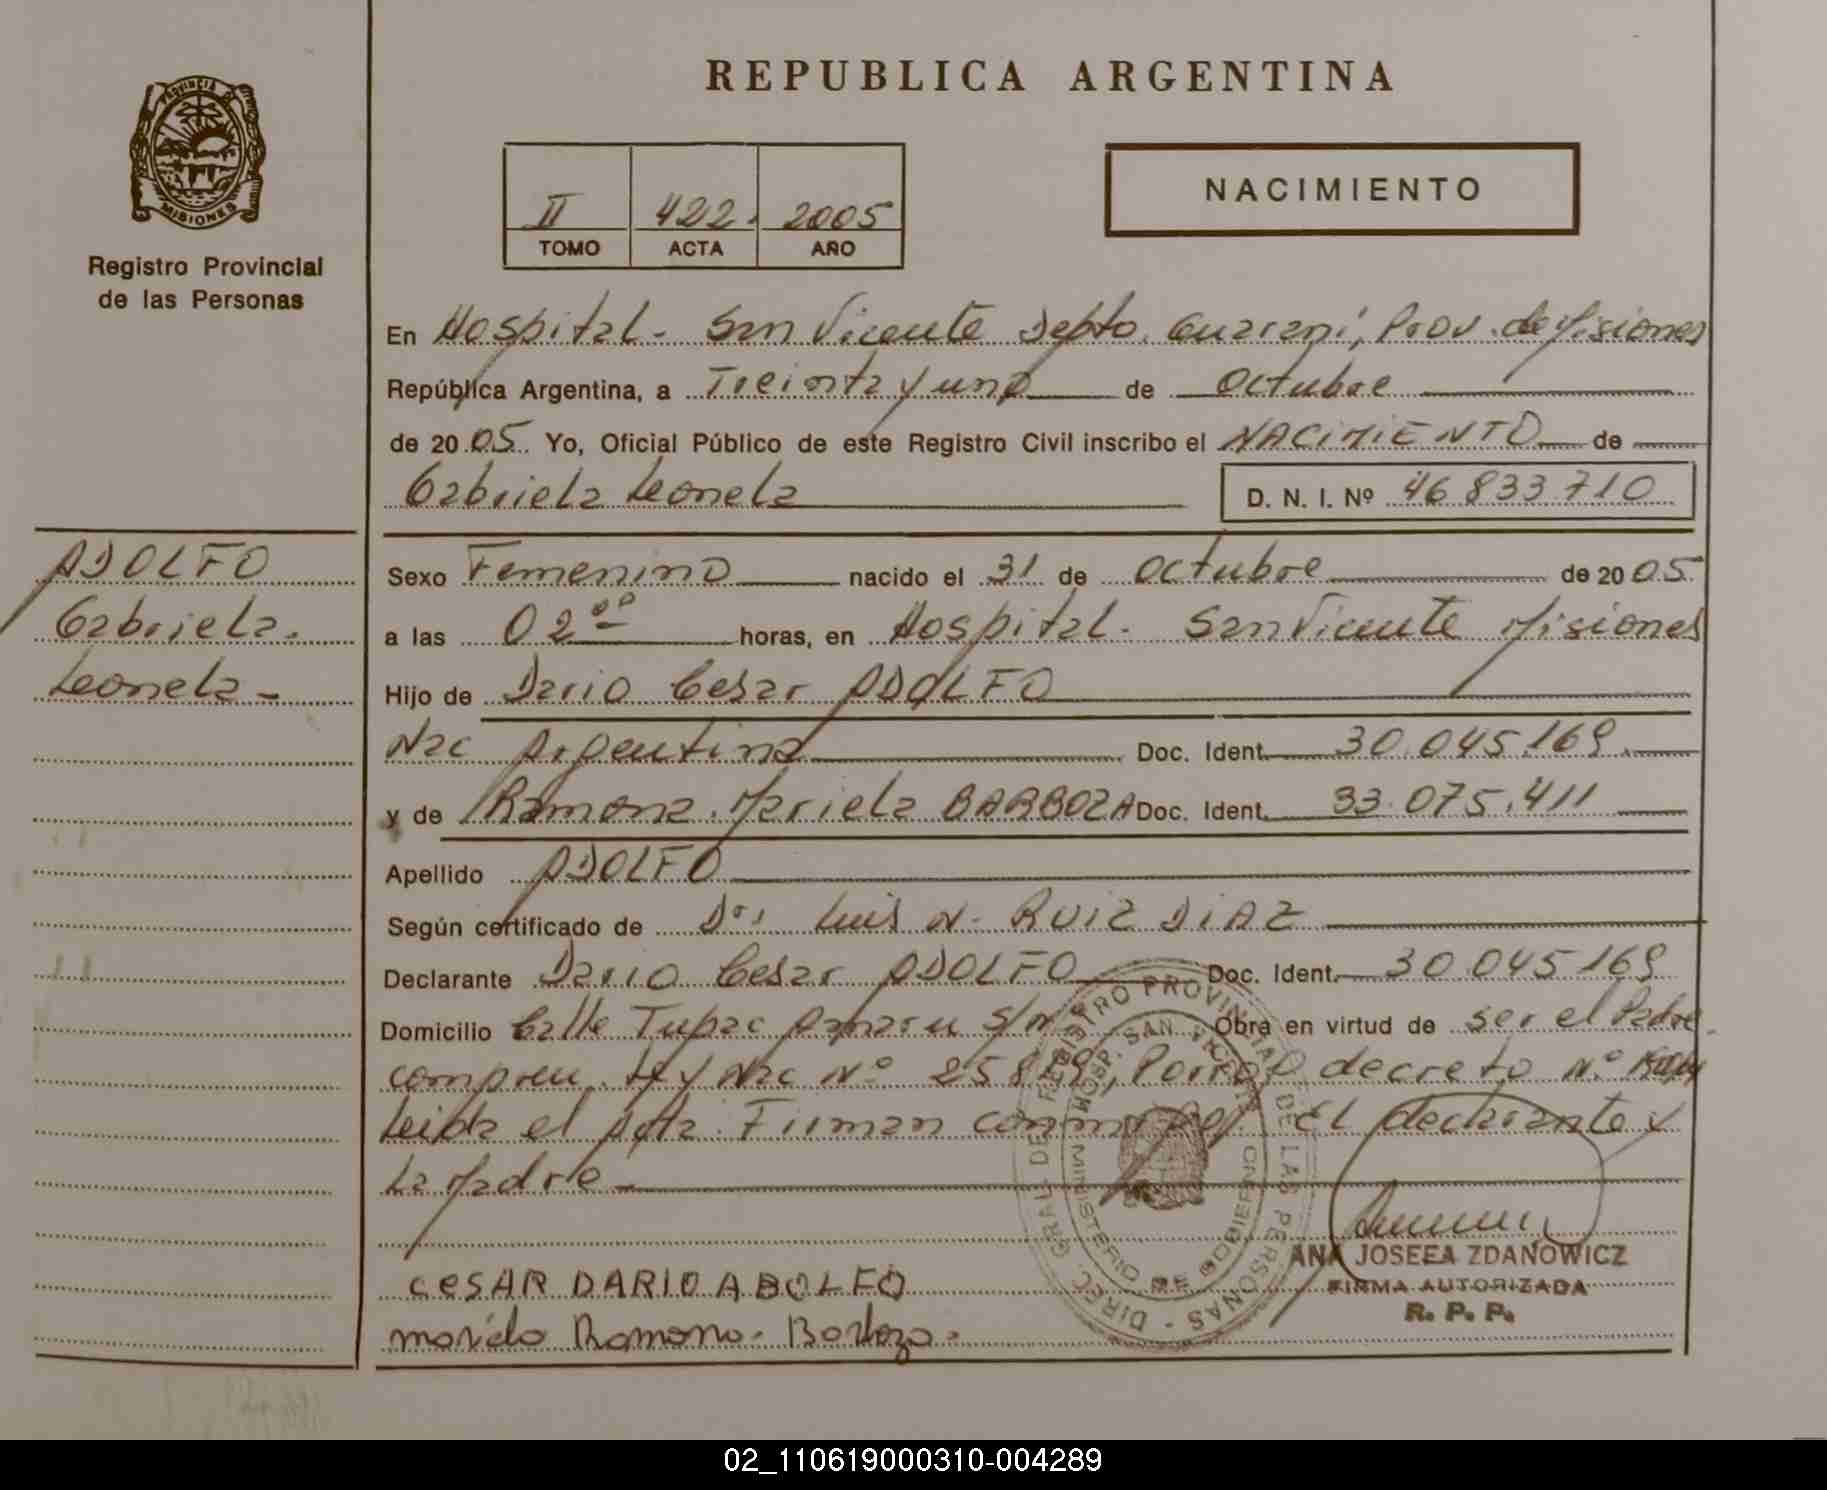 PROVINCIA DE
MISIONES
Registro Provincial
de las Personas
REPUBLICA ARGENTINA
II 422. 2005
TOMO ACTA AÑO
NACIMIENTO
En Hospital - San Vicente Depto. Guarani, Prov. de Misiones
República Argentina, a Treinta y uno de Octubre
de 20 05 Yo, Oficial Público de este Registro Civil inscribo el NACIMIENTO de
Gabriela Leonela D. N. I. Nº 46 833 710
ADOLFO
Gabriela.
Leonela -
Sexo Femenino nacido el 31 de Octubre de 20 05
a las 02 00 horas, en Hospital - San Vicente Misiones
Hijo de Dario Cesar ADOLFO
Nac Argentina Doc. Ident. 30.045.169
y de Ramona Mariela BARBOZA Doc. Ident. 33.075.411
Apellido ADOLFO
Según certificado de Dr. Luis N. RUIZ DIAZ
Declarante Dario Cesar ADOLFO Doc. Ident. 30 045 169
Domicilio Calle Tupac Amaru S/nº Obra en virtud de ser el Padre
compren. Ley Nac Nº decreto Nº
Leida el Acta. Firman conmigo. El declarante y
La Madre -
CESAR DARIO ADOLFO
mariela Ramona - Barboza -
DIREC. GRAL. DE REGISTRO PROVINCIAL DE LAS PERSONAS -
HOSP. SAN VICENTE
MINISTERIO DE GOBIERNO
ANA JOSEFA ZDANOWICZ
FIRMA AUTORIZADA
R. P. P.
02_110619000310-004289